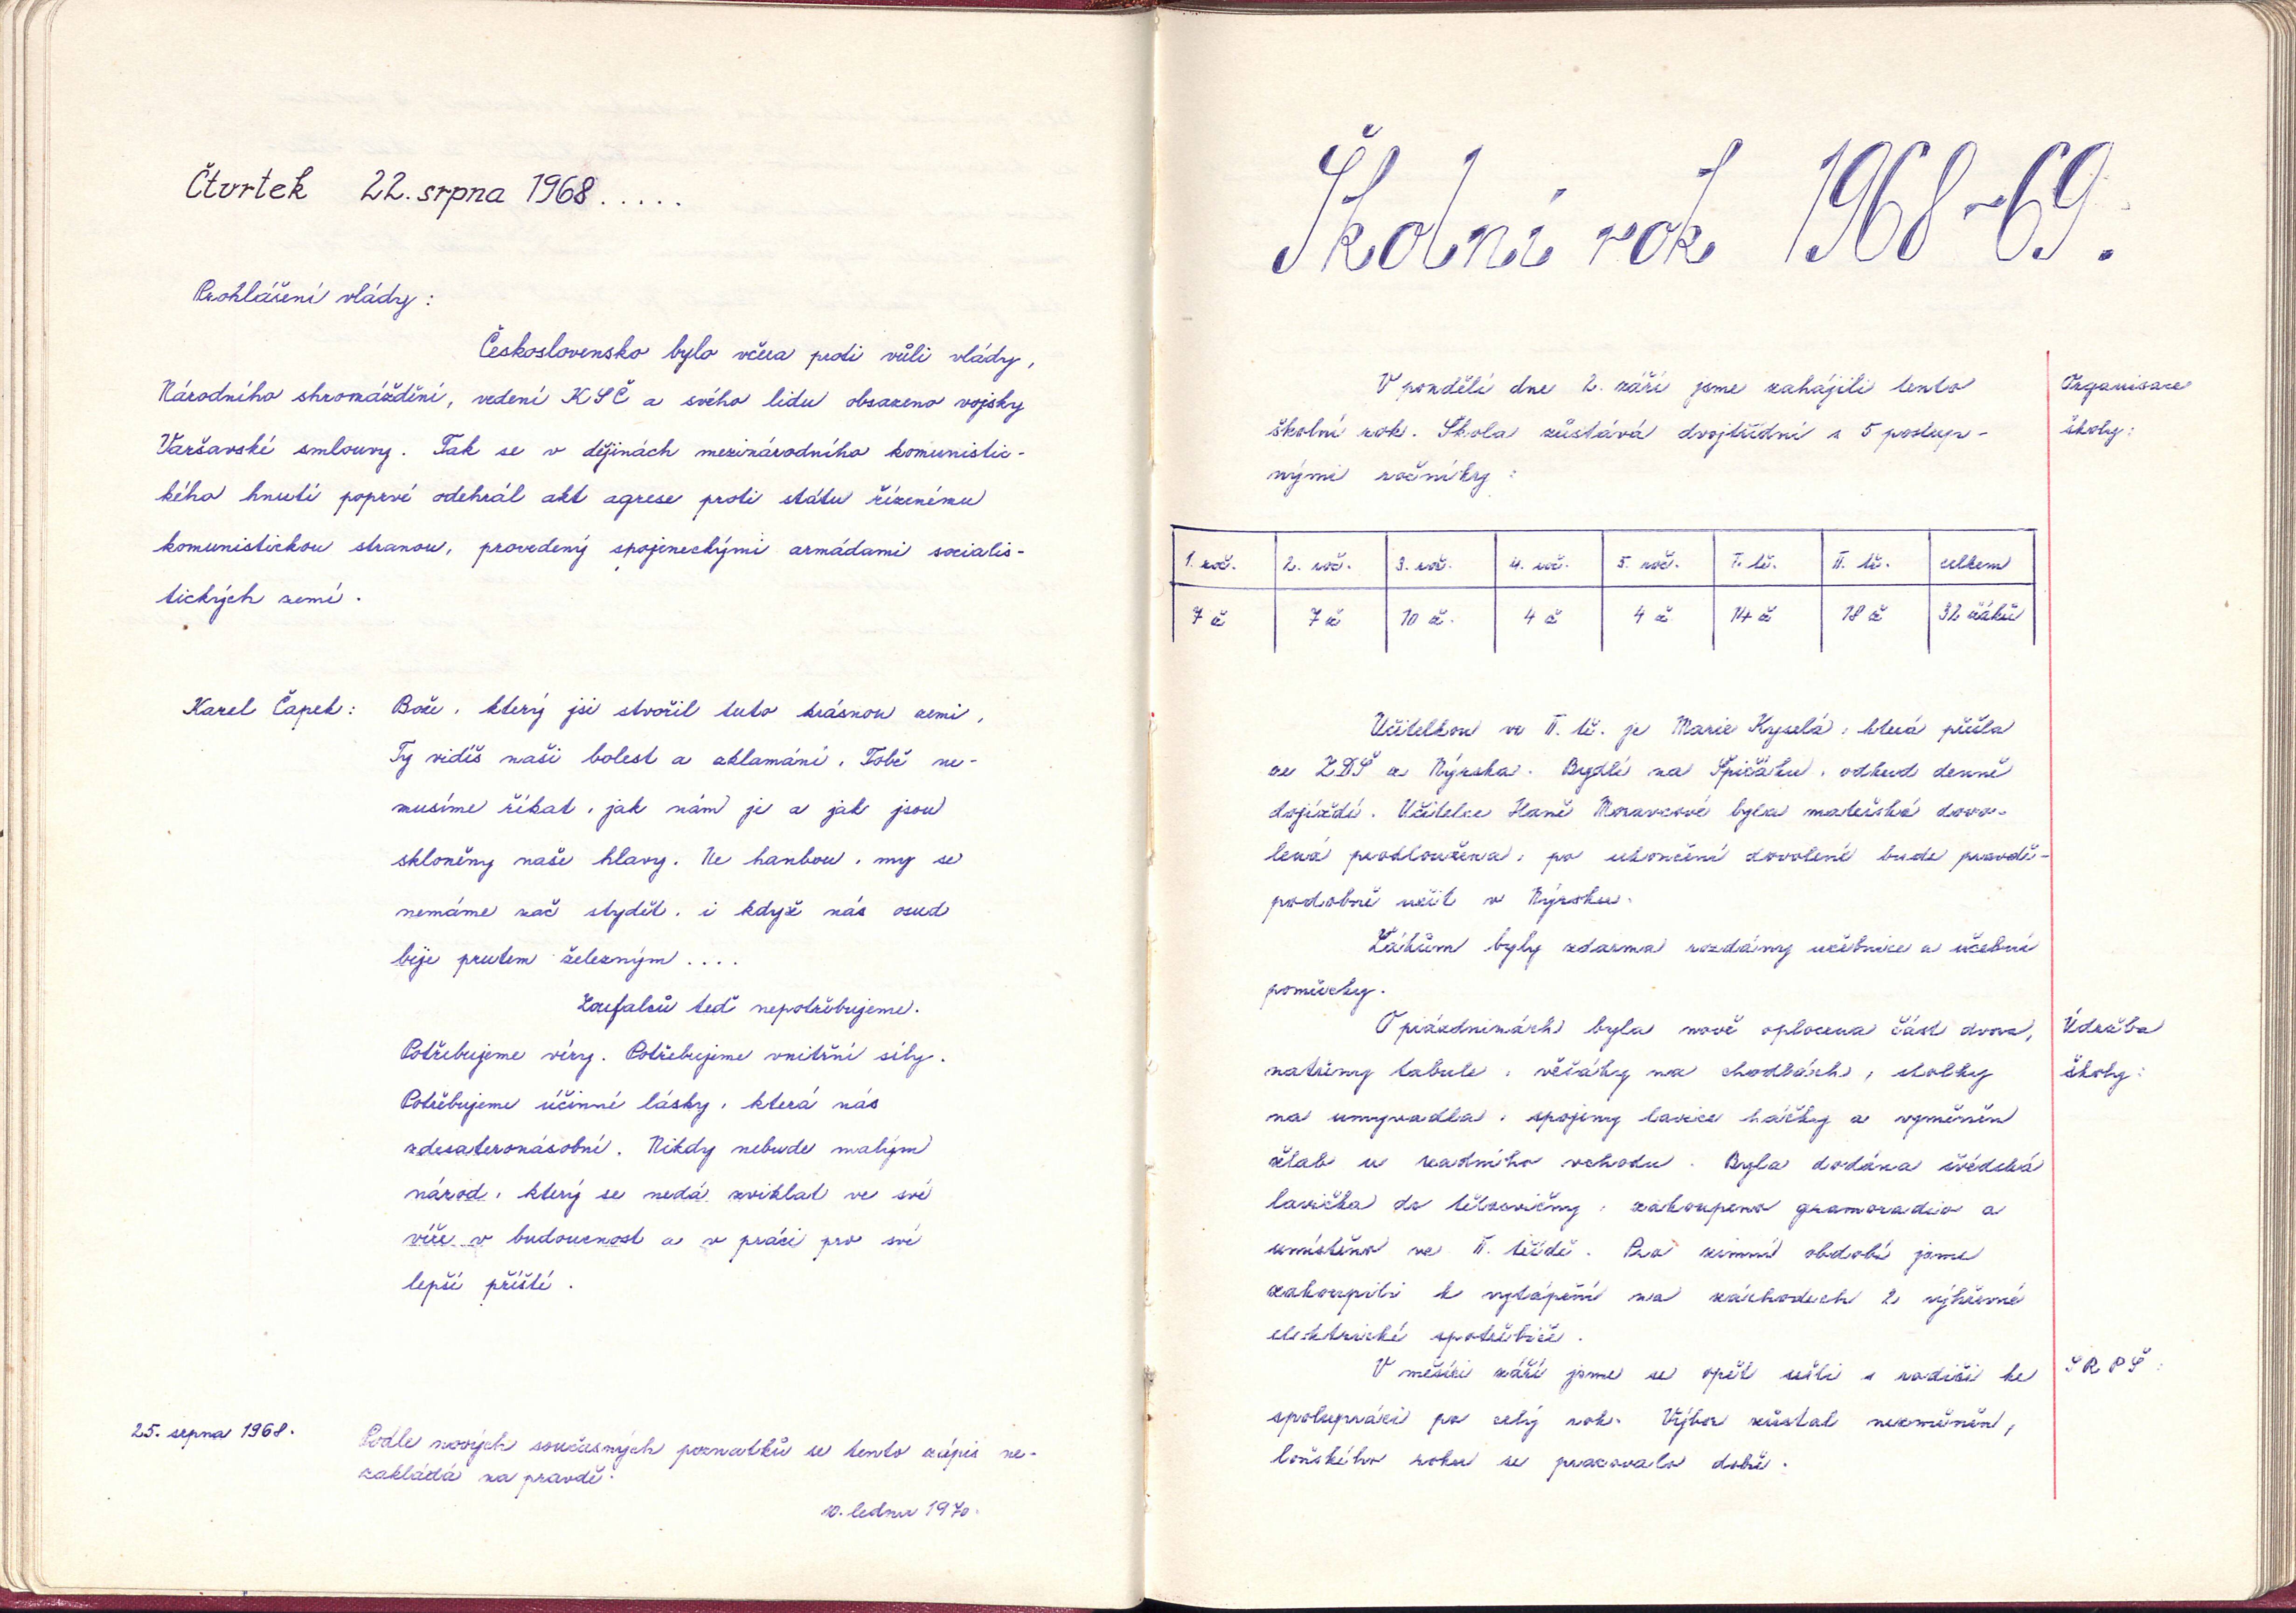 Čtvrtek 22. srpna 1968.....
Prohlášení vlády:
Československo bylo včera proti vůli vlády,
Národního shromáždění, vedení KSČ a svého lidu obsazeno vojsky
Varšavské smlouvy. Tak se v dějinách mezinárodního komunistic-
kého hnutí poprvé odehrál akt agrese proti státu řízenému
komunistickou stranou, provedený spojeneckými armádami socialis-
tických zemí.
Karel Čapek: Bože, který jsi stvořil tuto krásnou zemi,
Ty vidíš naši bolest a zklamání, Tobě ne-
musíme říkat, jak nám je a jak jsou
skloněny naše hlavy. Ne hanbou, my se
nemáme zač stydět, i když nás osud
bije prutem železným....
Zoufalců teď nepotřebujeme.
Potřebujeme víry. Potřebujeme vnitřní síly.
Potřebujeme účinné lásky, která nás
zdesateronásobní. Nikdy nebude malým
národ, který se nedá zviklat ve své
víře v budoucnost a v práci pro své
lepší příští.
25. srpna 1968.
Podle nových současných poznatků se tento zápis ne-
zakládá na pravdě.
10. ledna 1970.
Školní rok 1968-69.
V pondělí dne 2. září jsme zahájili tento
školní rok. Škola zůstává dvojtřídní s 5 postup-
nými ročníky:
Organisace
školy:
1. roč. 2. roč. 3. roč. 4. roč. 5. roč. I. tř. II. tř. celkem
7 ž 7 ž 10 ž. 4 ž 4 ž 14 ž 18 ž 32 žáků
Učitelkou ve II. tř. je Marie Kyselá, která přišla
ze ZDŠ z Nýrska. Bydlí na Špičáku, odkud denně
dojíždí. Učitelce Haně Moravcové byla mateřská dovo-
lená prodloužena, po ukončení dovolené bude pravdě-
podobně učit v Nýrsku.
Žákům byly zdarma rozdány učebnice a učební
pomůcky.
O prázdninách byla nově oplocena část dvora,
natřeny tabule, věšáky na chodbách, stolky
na umyvadla, spojeny lavice háčky a vyměněn
žlab u zadního vchodu. Byla dodána švédská
lavička do tělocvičny, zakoupeno gramoradio a
umístěno ve II. třídě. Pro zimní období jsme
zakoupili k vytápění na záchodech 2 výhřevné
elektrické spotřebiče.
Údržba
školy:
V měsíci září jsme se opět sešli s rodiči ke
spolupráci po celý rok. Výbor zůstal nezměněn,
loňského roku se pracovalo dobře.
SRPŠ: